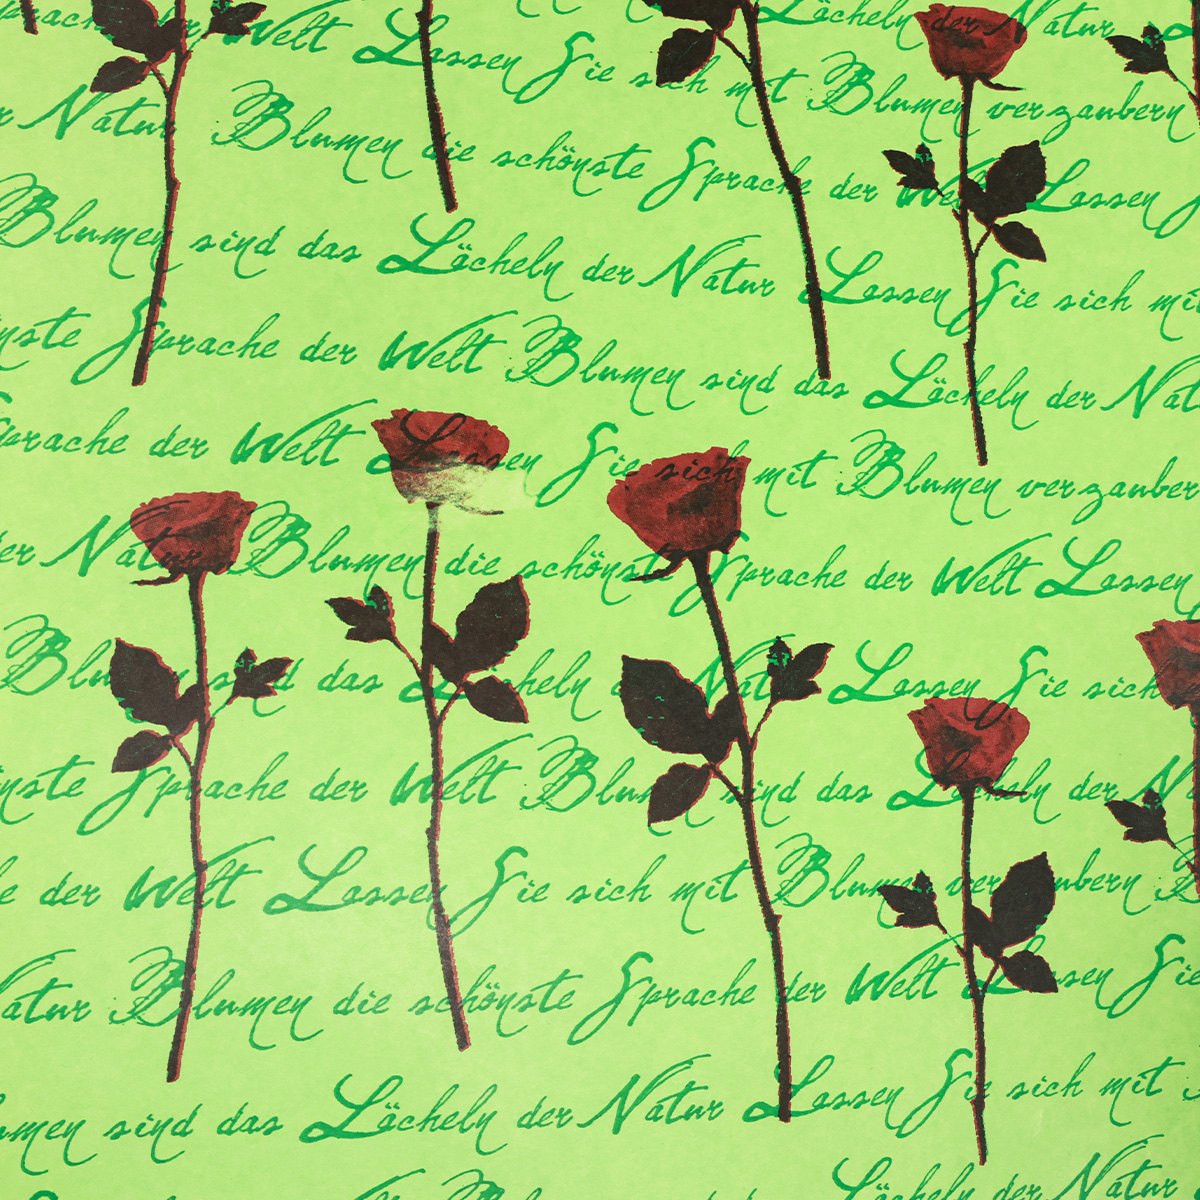 Sprache der Welt Lassen Sie sich mit Blumen verzaubern
Lächeln der Natur
der Natur Blumen die schönste Sprache der Welt Lassen
Blumen sind das Lächeln der Natur Lassen Sie sich mit
Sprache der Welt Blumen sind das Lächeln der
Sprache der Welt Lassen Sie sich mit Blumen
der Natur Blumen die schönste Sprache der Welt Lassen
Blumen sind das Lächeln der Natur Lassen Sie sich
Sprache der Welt Blumen sind das Lächeln der
der Welt Lassen Sie sich mit Blumen verzaubern
Natur Blumen die schönste Sprache der Welt Lassen Sie
sind das Lächeln der Natur Lassen Sie sich mit
Lächeln der Natur